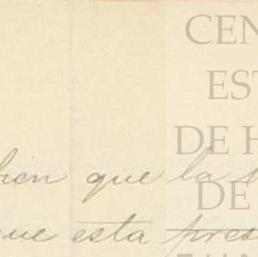 CEN
EST
DE H
DE
bien que la
que esta pres